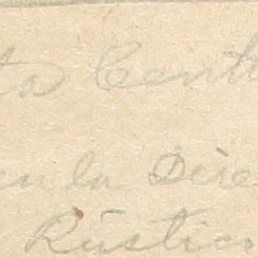 ta Cent
en la Dire
Rústic